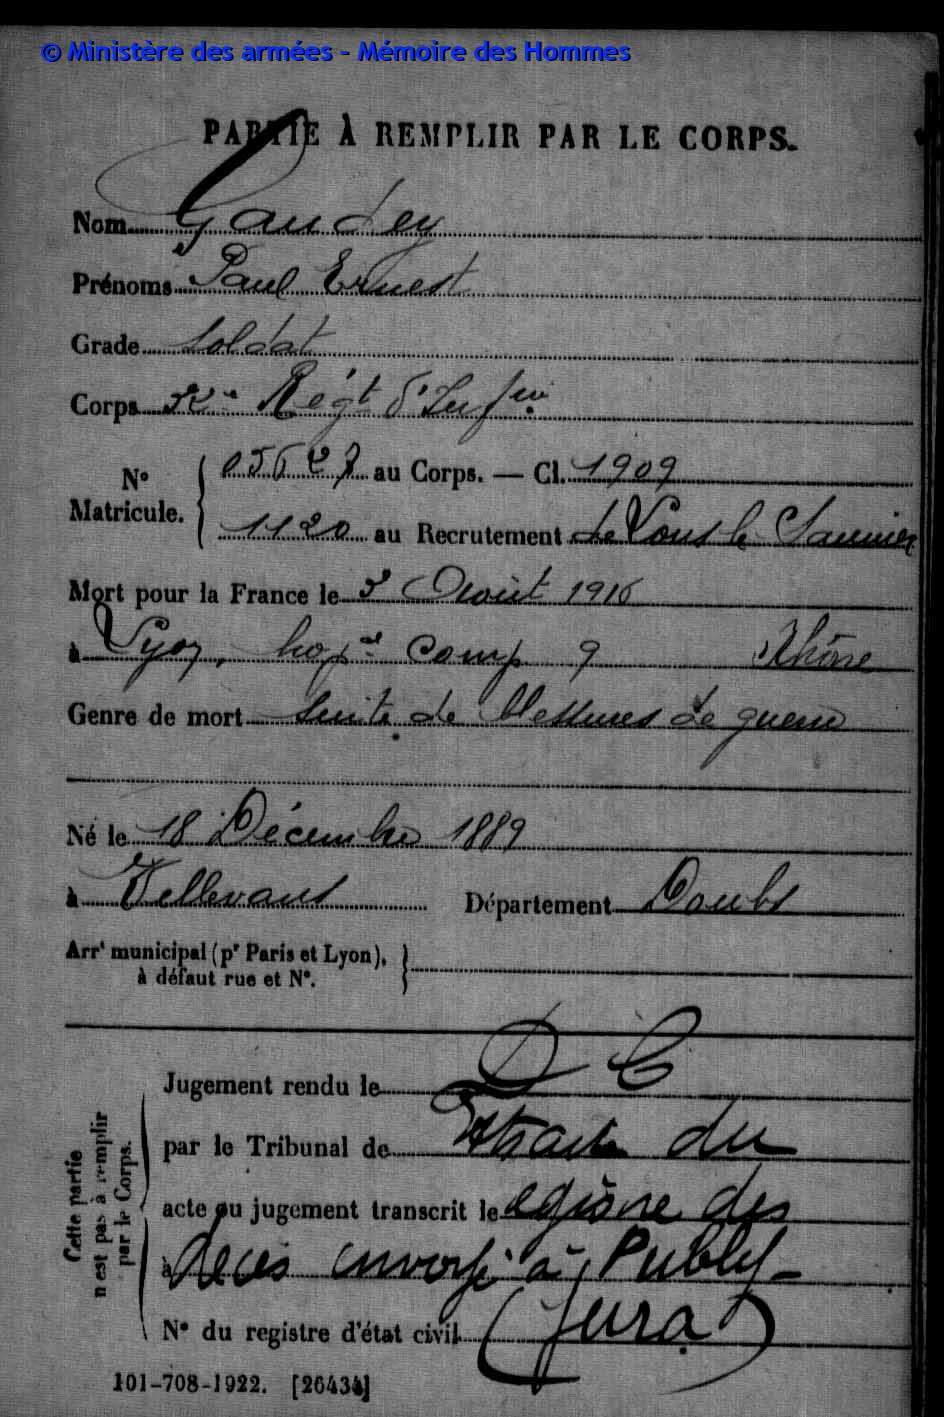 © Ministère des armées - Mémoire des Hommes
PARTIE À REMPLIR PAR LE CORPS.
Nom Gaudey
Prénoms Paul Ernest
Grade Soldat
Corps Régt d'Inf
N° Matricule. 05627 au Corps. — Cl. 1909
1120 au Recrutement de Lons le Saunier
Mort pour la France le Août 1916
à Lyon, hopal comp 9 Rhône
Genre de mort Suite de blessures de guerre
Né le 18 Décembre 1889
à Vellevans Département Doubs
Arrt municipal (pr Paris et Lyon),
à défaut rue et N°.
Cette partie n'est pas à remplir par le Corps.
Jugement rendu le D C
par le Tribunal de Extrait du
acte ou jugement transcrit le registre des
à décès envoyé à Publy
N° du registre d'état civil (Jura)
101-708-1922. [26434]